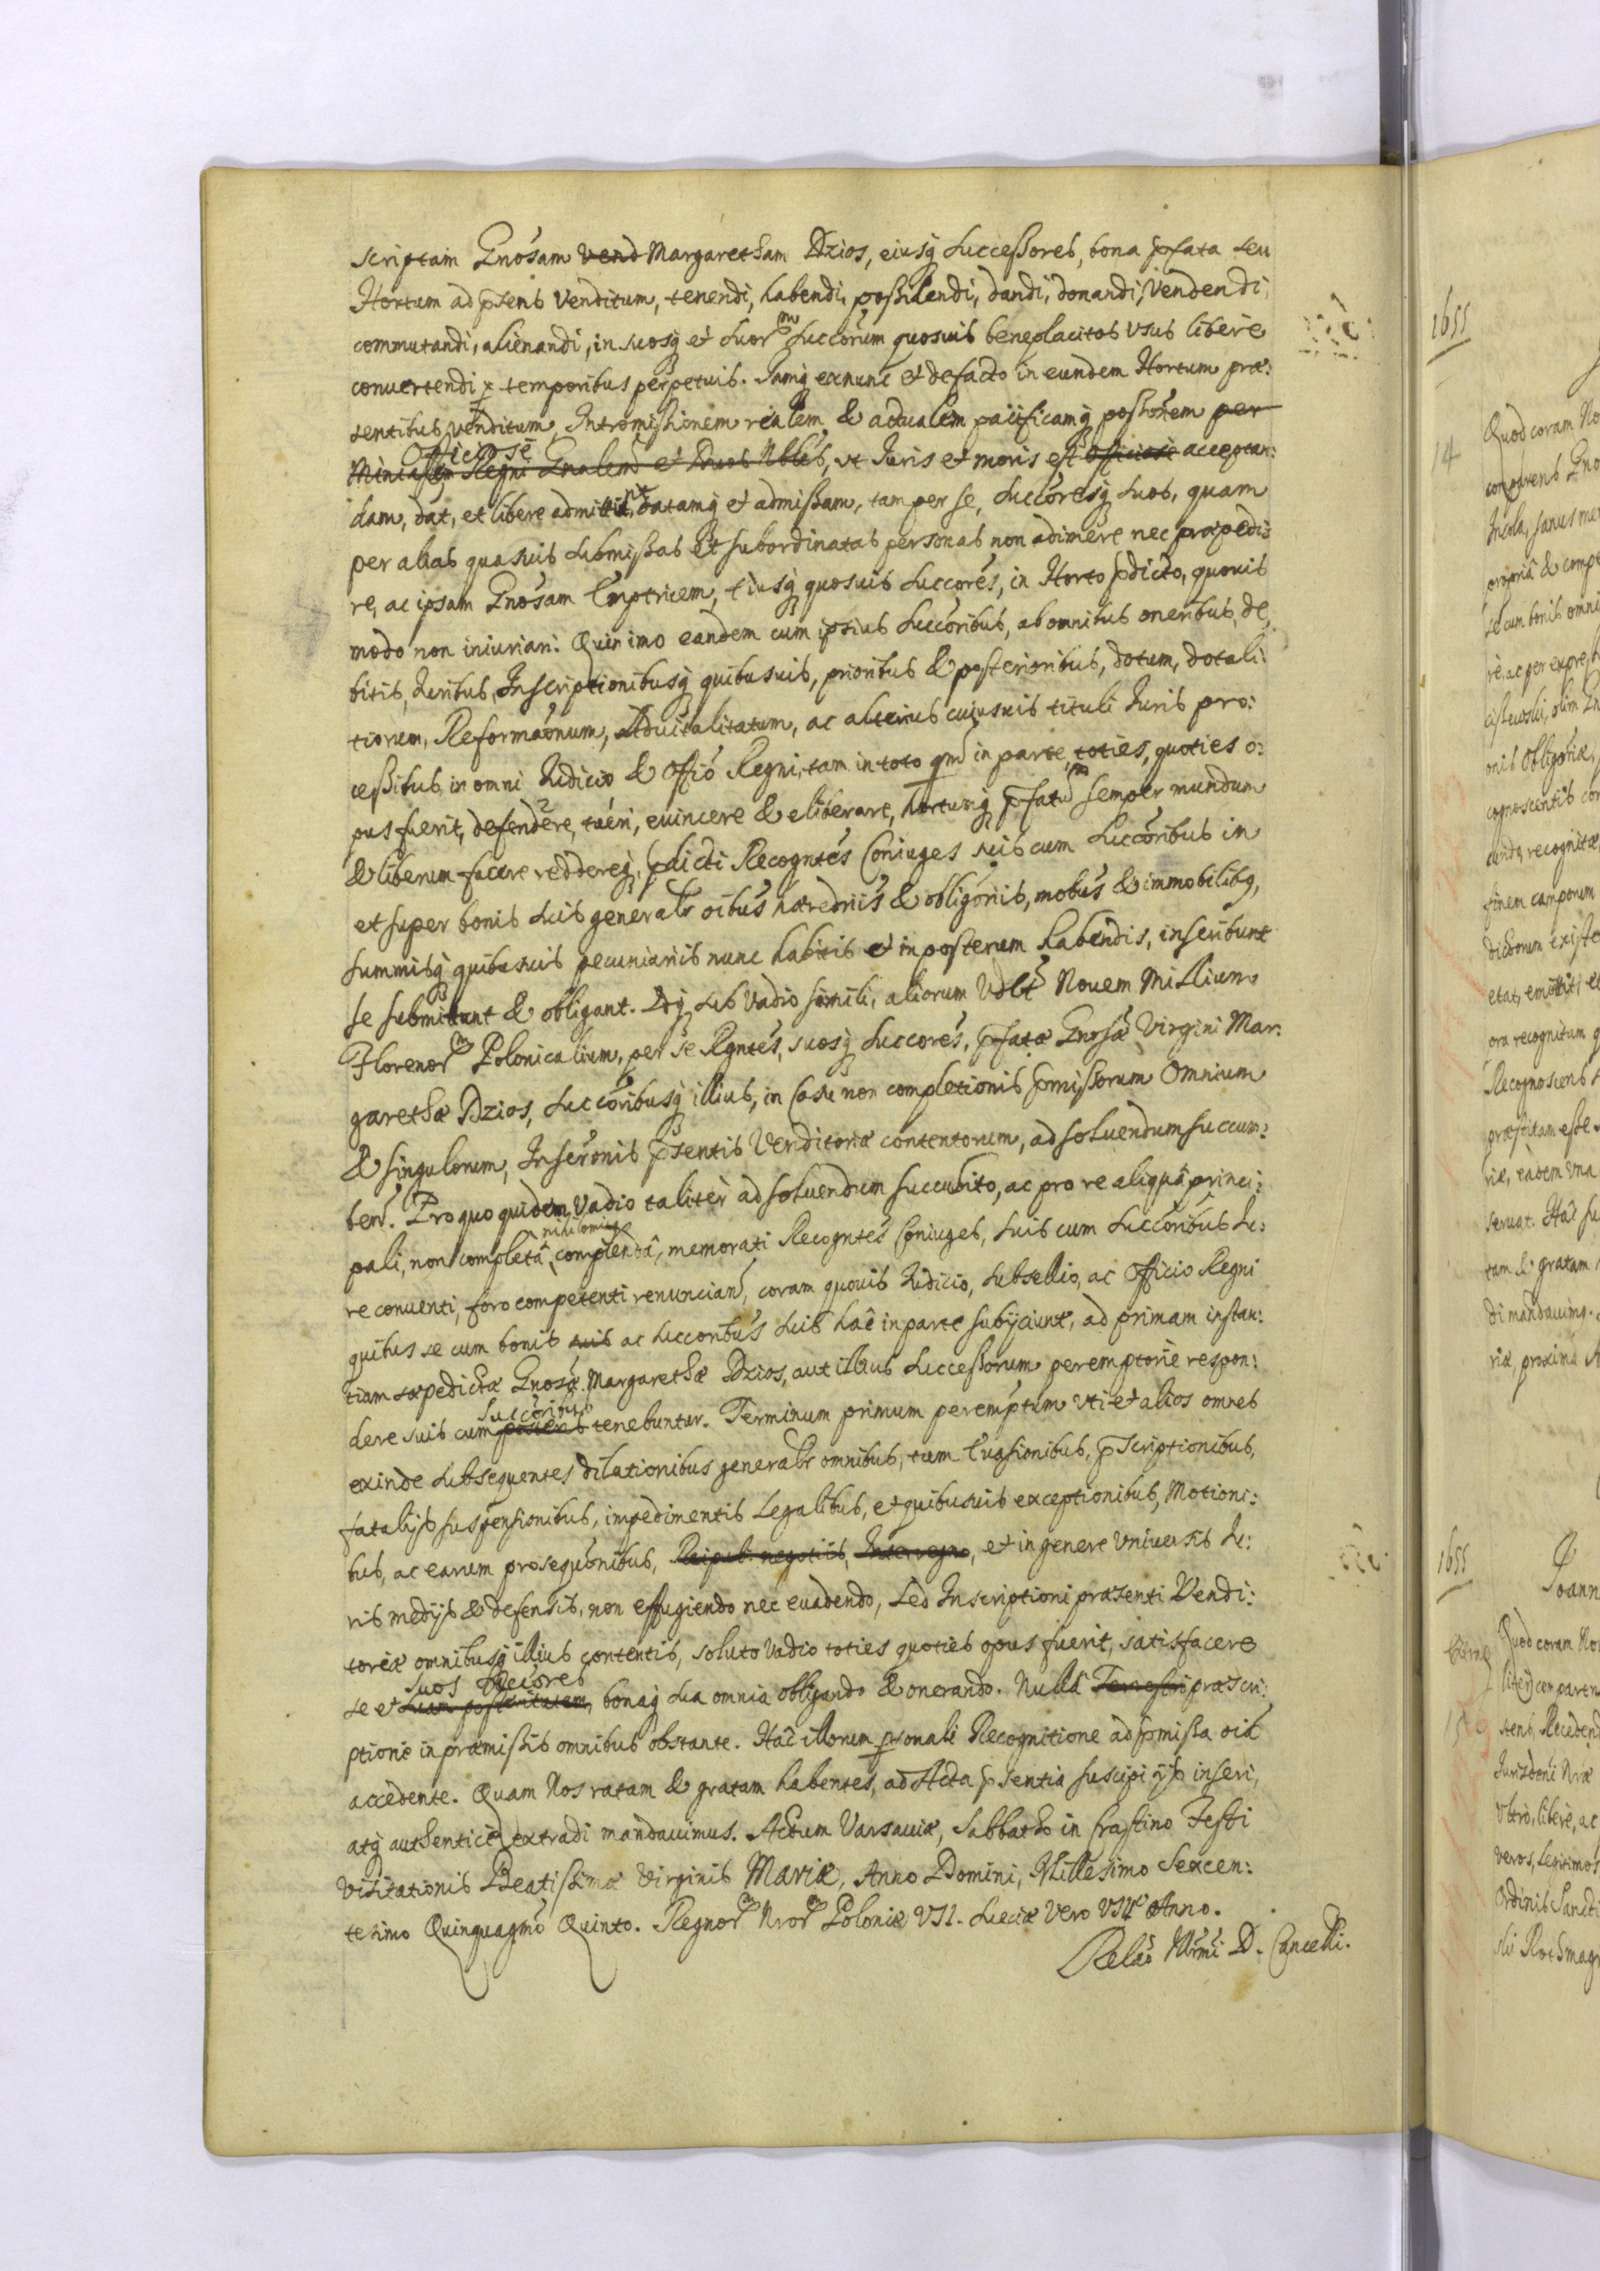 scriptam Gnosam vend Margaretham Dzios, eiusq Successores, bona pfata seu
Hortum ad psens venditum, tenendi, habendi, possidendi, dandi, donandi, vendendi,
commutandi, alienandi, in suosq et suor Succorum quosuis beneplacitos vsus libere
conuertendi p temporibus perpetuis. Iamq exnunc et defacto in eundem Hortum præ:
sentibus venditum, Intromissionem realem & actualem pacificamq possionem per
Officiose
Minialem Regni Gnalem et Duos Nobles, vt Iuris et moris est officiose acceptan:
dam, dat, et libere admittit, datamq et admissam, tam per se, Succoresq suos, quam
per alias quasuis submissas et subordinatas personas non adimere nec præpedi:
re, ac ipsam Gnosam Emptricem, eiusq quosuis Succores, in Horto pdicto, quouis
modo non iniuriari. Quinimo eandem cum ipsius Succoribus, ab omnibus oneribus, de:
bitis, Iuribus, Inscriptionibusq quibusuis, prioribus & posterioribus, dotum, dotali:
tiorum, Reformaonum, Aduitalitatum, ac alterius cuiusuis tituli Iuris pro:
cessibus, in omni Iudicio & Offio Regni, tam in toto qm in parte, toties, quoties o:
pus fuerit, defendere, tueri, euincere & eliberare, hortumq pfatum semper mundum
& liberum facere reddereq, pdicti Recogntes Coniuges suis cum Succoribus in
et super bonis suis generalr oibus hæredriis & obligoriis, mobus & immobilibq,
summisq quibusuis pecuniariis nunc habitis et in posterum habendis, inscribunt
se submittunt & obligant. Idq sub vadio simili, aliorum Vdlt Nouem Millium
Florenor Polonicalium, per se Rgntes, suosq Succores, pfatæ Gnosæ Virgini Mar:
garethæ Dzios, Succoribusq illius, in Casu non completionis pmissorum Omnium
& singulorum, Inscronis psentis Venditoriæ contentorum, ad soluendum succum:
ben. Pro quo quidem vadio taliter ad soluendum succubito, ac pro re aliqua princi:
nihilominus
pali, non completa complenda, memorati Recogntes Coniuges, suis cum Succoribus Iu:
re conuenti, foro competenti renuncian, coram quouis Iudicio, Subsellio, ac Officio Regni
quibus se cum bonis suis ac Succoribus suis hac in parte subijciunt, ad primam instan:
tiam sæpedictæ Gnosæ Margarethæ Dzios, aut illius Successorum peremptorie respon:
Succoribus
dere suis cum posteris tenebuntur. Terminum primum peremptum vti et alios omnes
exinde subsequentes dilationibus generalr omnibus, tum Euasionibus, pscriptionibus,
fatalijs suspensionibus, impedimentis Legalibus, et quibusuis exceptionibus, Motioni:
bus, ac earum prosequonibus, Reipub: negotiis, Interregno, et in genere vniuersis Iu:
ris medijs & defensis, non effugiendo nec euadendo, sed Inscriptioni præsenti Vendi:
toriæ omnibusq illius contentis, soluto vadio toties quoties opus fuerit, satisfacere
suos Succores
se et suam posteritatem, bonaq sua omnia obligando & onerando. Nulla Terrestri præscri:
ptione in præmissis omnibus obstante. Hac illorum psonali Recognitione ad pmissa oia
accedente. Quam Nos ratam & gratam habentes, ad Acta psentia suscipi ijsq inseri,
atq authentice extradi mandauimus. Actum Varsauiæ, Sabbatho in Crastino Festi
Visitationis Beatissimæ Virginis Mariæ, Anno Domini, Millesimo Sexcen:
tesimo Quinquagmo Quinto. Regnor Nror Poloniæ VII. Sueciæ vero VIII Anno.
Relao Illmi D. Cancelli.
1655
14
1655